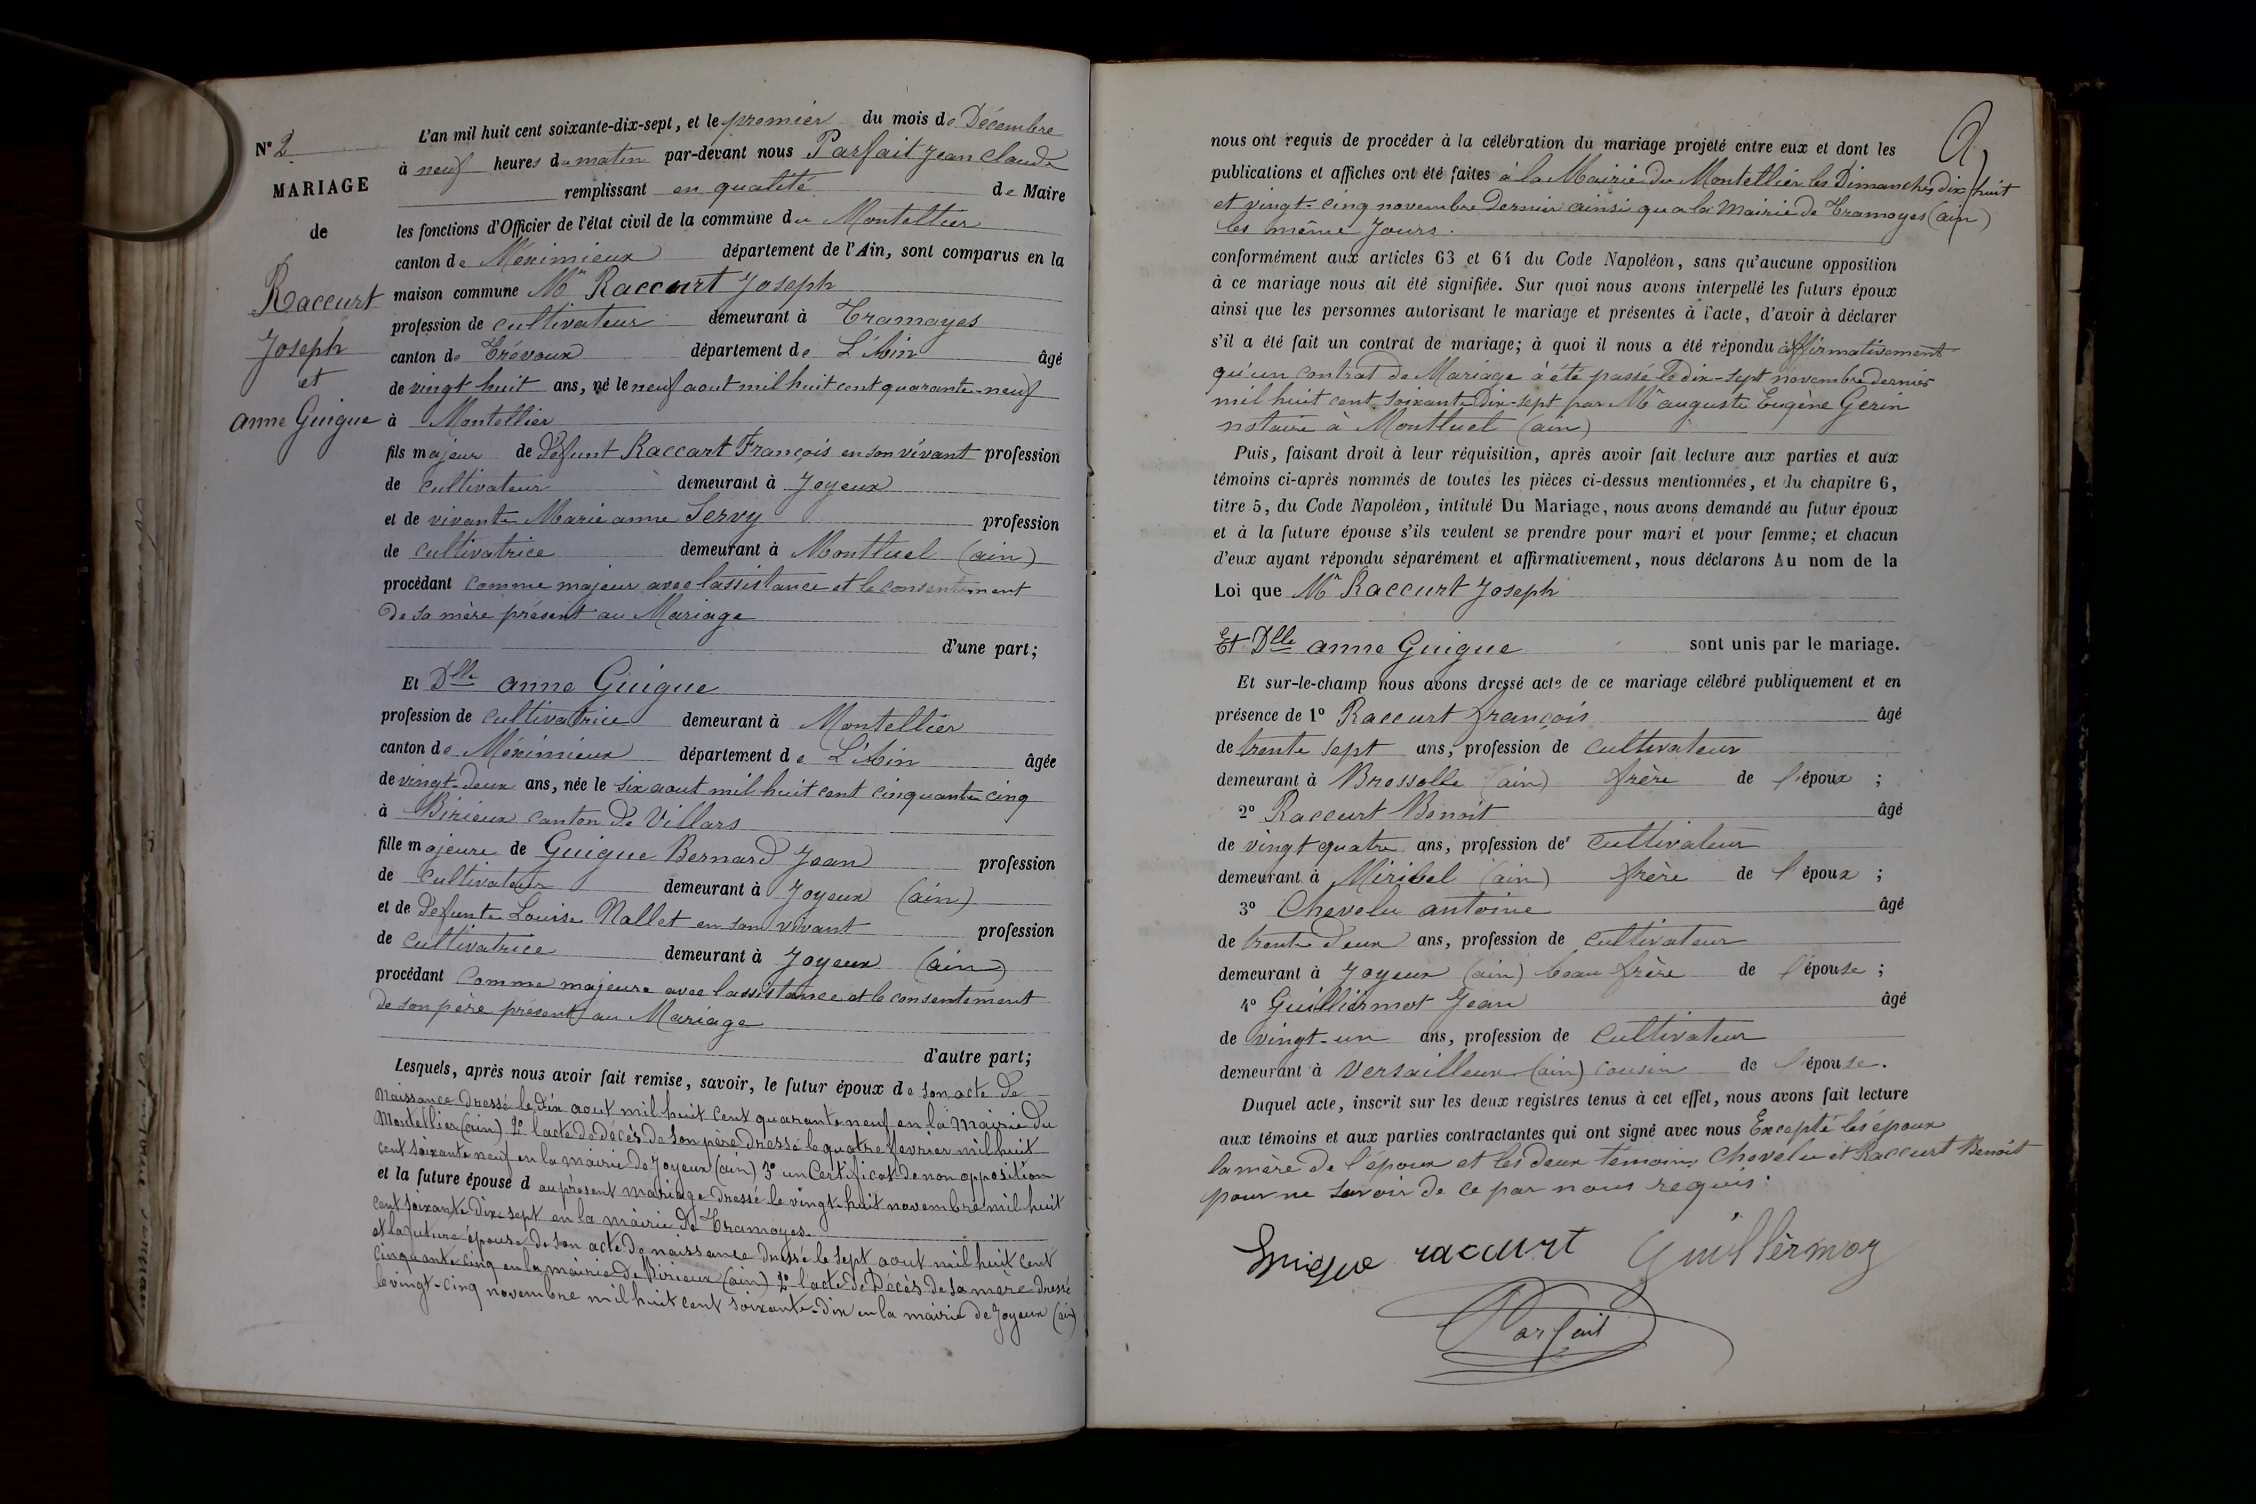 N° 2
MARIAGE
de
Raccurt
Joseph
et
anne Guigue
L'an mil huit cent soixante-dix-sept, et le premier du mois de Décembre
à neuf heures du matin par-devant nous Parfait Jean Claude
remplissant en qualité de Maire
les fonctions d'Officier de l'état civil de la commune du Montellier
canton de Méximieux département de l'Ain, sont comparus en la
maison commune Mr Raccurt Joseph
profession de cultivateur demeurant à Tramoyes
canton de Trévoux département de L'Ain âgé
de vingt huit ans, né le neuf aout mil huit cent quarante-neuf
à Montellier
fils majeur de défunt Raccurt François en son vivant profession
de cultivateur demeurant à Joyeux
et de vivante Marie anne Servy profession
de cultivatrice demeurant à Montluel (ain)
procédant comme majeur avec lassistance et le consentement
de sa mère présent au Mariage
d'une part;
Et Dlle anne Guigue
profession de cultivatrice demeurant à Montellier
canton de Méximieux département de L'Ain âgée
de vingt-deux ans, née le six aout mil huit cent cinquante cinq
à Birieux canton de Villars
fille majeure de Guigue Bernard Jean profession
de cultivateur demeurant à Joyeux (ain)
et de defunte Louise Nallet en son vivant profession
de cultivatrice demeurant à Joyeux (ain)
procédant Comme majeure avec lassistance et le consentement
de son père présent au Mariage
d'autre part;
Lesquels, après nous avoir fait remise, savoir, le futur époux de son acte de
Naissance dressé le dix aout mil huit cent quarante neuf en la mairie du
Montellier (ain) 2° l'acte de décès de son père dressé le quatre fevrier mil huit
cent soixante neuf en la mairie de Joyeux (ain) 3° un Certificat de non opposition
et la future épouse d au présent mariage dressé le vingt-huit novembre mil huit
cent soixante dix-sept en la mairie de Tramoyes.
et la future épouse de son acte de naissance dressé le sept aout mil huit cent
cinquante-cinq en la mairie de Birieux (ain) 2° l'acte de Décès de sa mère dressé
le vingt-cinq novembre mil huit cent soixante-dix en la mairie de Joyeux (ain)
2,
nous ont requis de procéder à la célébration du mariage projeté entre eux et dont les
publications et affiches ont été faites à la Mairie du Montellier les Dimanches dix-huit
et vingt-cinq novembre dernier ainsi qu'a la Mairie de Tramoyes (ain)
les même Jours.
conformément aux articles 63 et 64 du Code Napoléon, sans qu'aucune opposition
à ce mariage nous ait été signifiée. Sur quoi nous avons interpellé les futurs époux
ainsi que les personnes autorisant le mariage et présentes à l'acte, d'avoir à déclarer
s'il a été fait un contrat de mariage; à quoi il nous a été répondu affirmativement
qu'un contrat de Mariage à été passé le dix-sept novembre dernier
mil huit cent soixante dix-sept par Me auguste Eugène Gerin
notaire à Montluel (ain)
Puis, faisant droit à leur réquisition, après avoir fait lecture aux parties et aux
témoins ci-après nommés de toutes les pièces ci-dessus mentionnées, et du chapitre 6,
titre 5, du Code Napoléon, intitulé Du Mariage, nous avons demandé au futur époux
et à la future épouse s'ils veulent se prendre pour mari et pour femme; et chacun
d'eux ayant répondu séparément et affirmativement, nous déclarons Au nom de la
Loi que Mr Raccurt Joseph
Et Dlle anne Guigue sont unis par le mariage.
Et sur-le-champ nous avons dressé acte de ce mariage célébré publiquement et en
présence de 1° Raccurt françois âgé
de trente sept ans, profession de cultivateur
demeurant à Bressolle (ain) frère de l'époux ;
2° Raccurt Benoit âgé
de vingt quatre ans, profession de cultivateur
demeurant à Miribel (ain) frère de l'époux ;
3° Chevelu antoine âgé
de trente deux ans, profession de cultivateur
demeurant à Joyeux (ain) beau frère de l'épouse ;
4° Guilliermot Jean âgé
de vingt-un ans, profession de cultivateur
demeurant à versailleux (ain) cousin de l'épouse.
Duquel acte, inscrit sur les deux registres tenus à cet effet, nous avons fait lecture
aux témoins et aux parties contractantes qui ont signé avec nous Excepté les époux
la mère de l'époux et les deux témoins Chevelu et Raccurt Benoit
pour ne savoir de ce par nous requis.
Guigue raccurt Guillermoz
Parfait